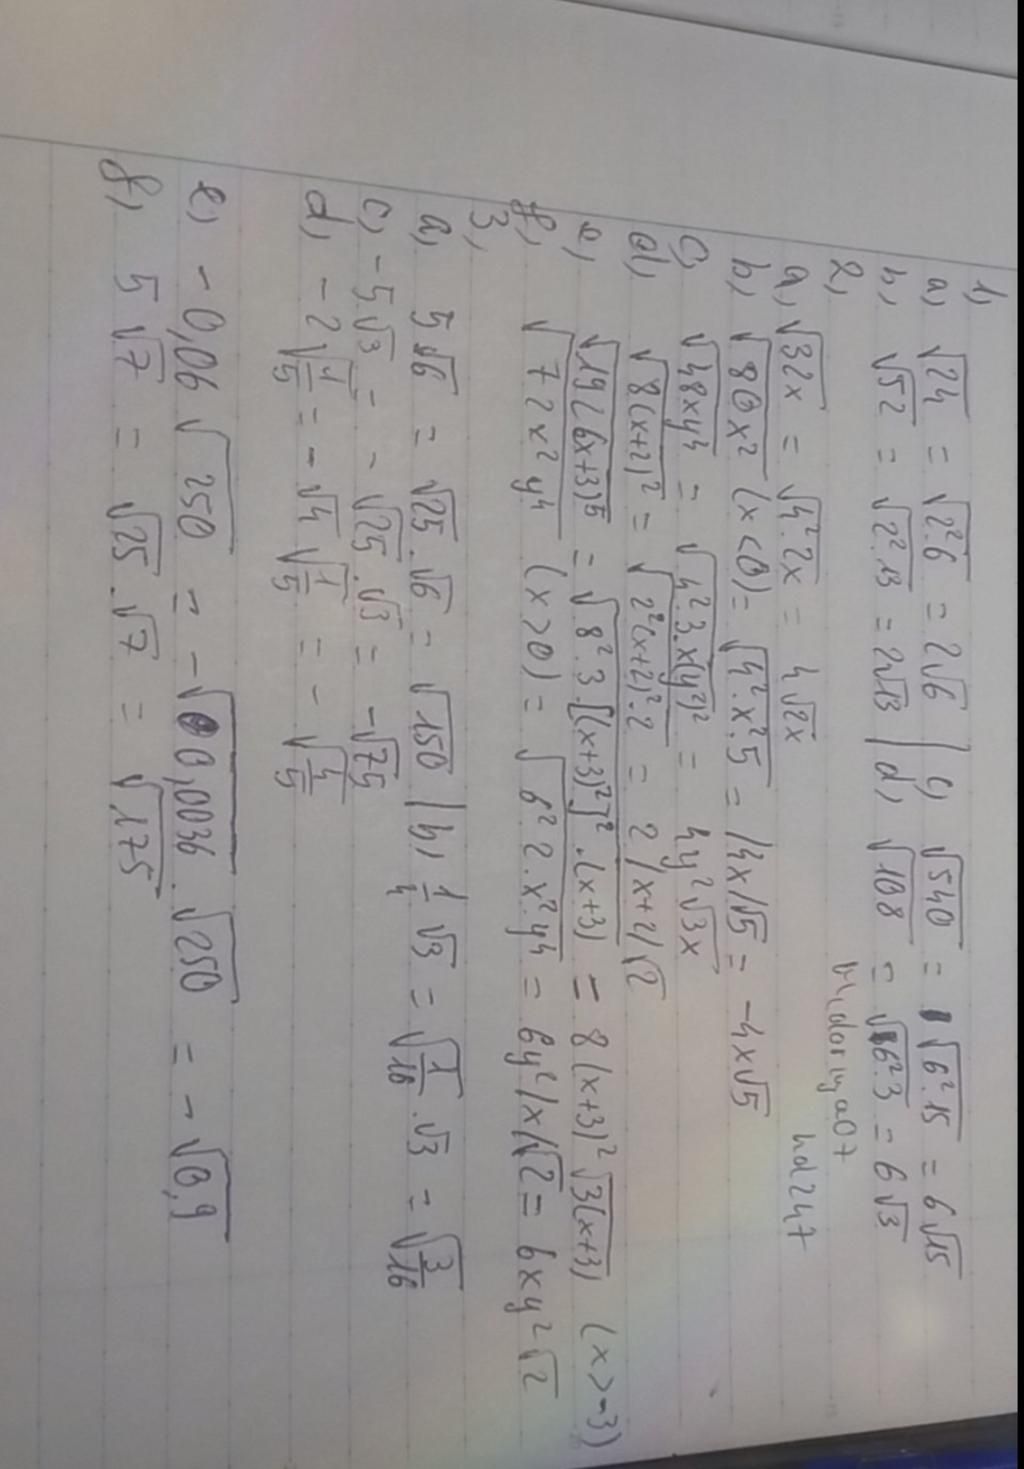 1,
a, √24 = √2².6 = 2√6 | c, √540 = √6².15 = 6√15
b, √52 = √2².13 = 2√13 | d, √108 = √6².3 = 6√3
2,
a, √32x = √4².2x = 4√2x
b, √80x² (x<0) = √4².x².5 = |4x|√5 = -4x√5
c, √48xy⁴ = √4².3.x(y²)² = 4y²√3x
d, √8(x+2)² = √2²(x+2)².2 = 2|x+2|√2
e, √192(x+3)⁵ = √8².3.[(x+3)²]².(x+3) = 8(x+3)²√3(x+3) (x>-3)
f, √72x²y⁴ (x>0) = √6².2.x².y⁴ = 6y²|x|√2 = 6xy²√2
3,
a, 5√6 = √25.√6 = √150 | b, 1/4 √3 = √1/16 .√3 = √3/16
c, -5√3 = -√25.√3 = -√75
d, -2√1/5 = -√4 √1/5 = -√4/5
e, -0,06√250 = -√0,0036.√250 = -√0,9
f, 5√7 = √25.√7 = √175
hd247